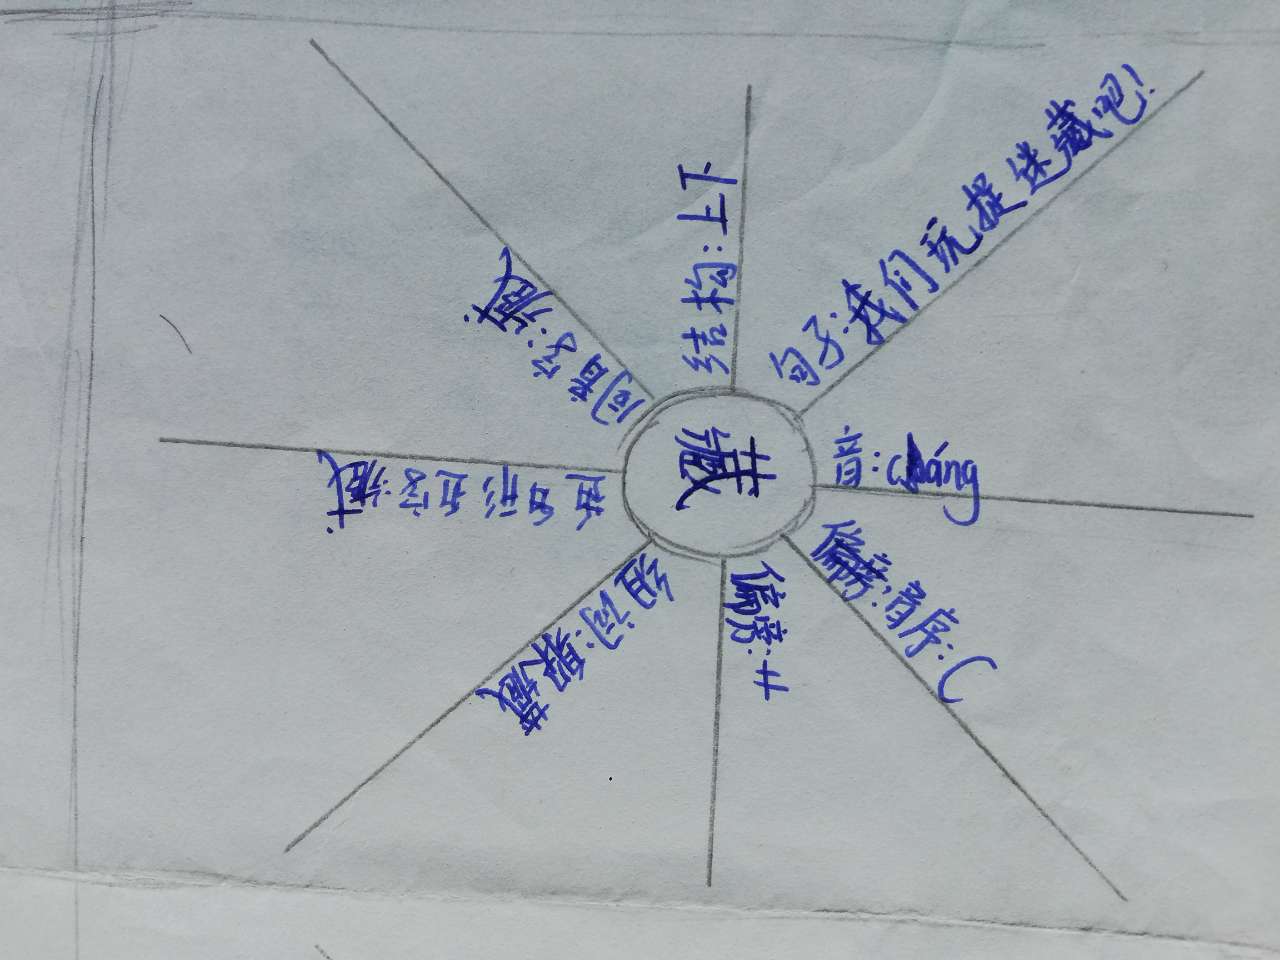 藏
音:cáng
偏旁,音序:C
偏旁:艹
组词:躲藏
同音字:
结构:上下
句子:我们玩捉迷藏吧!